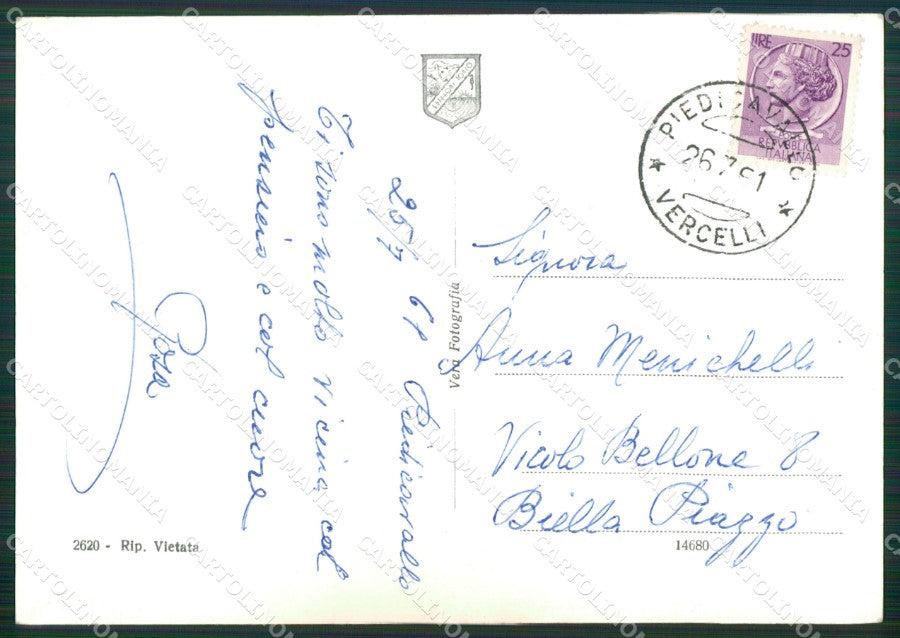 25/7 61 Piedicavallo
Ti sono molto vicina col
pensiero e col cuore
Rosa
Vera Fotografia
2620 - Rip. Vietata
LIRE 25
REPVBBLICA
ITALIANA
PIEDICAVALLO
26.7.61
VERCELLI
Signora
Anna Menichelli
Vicolo Bellone 8
Biella Piazzo
14680
CARTOLINOMANIA